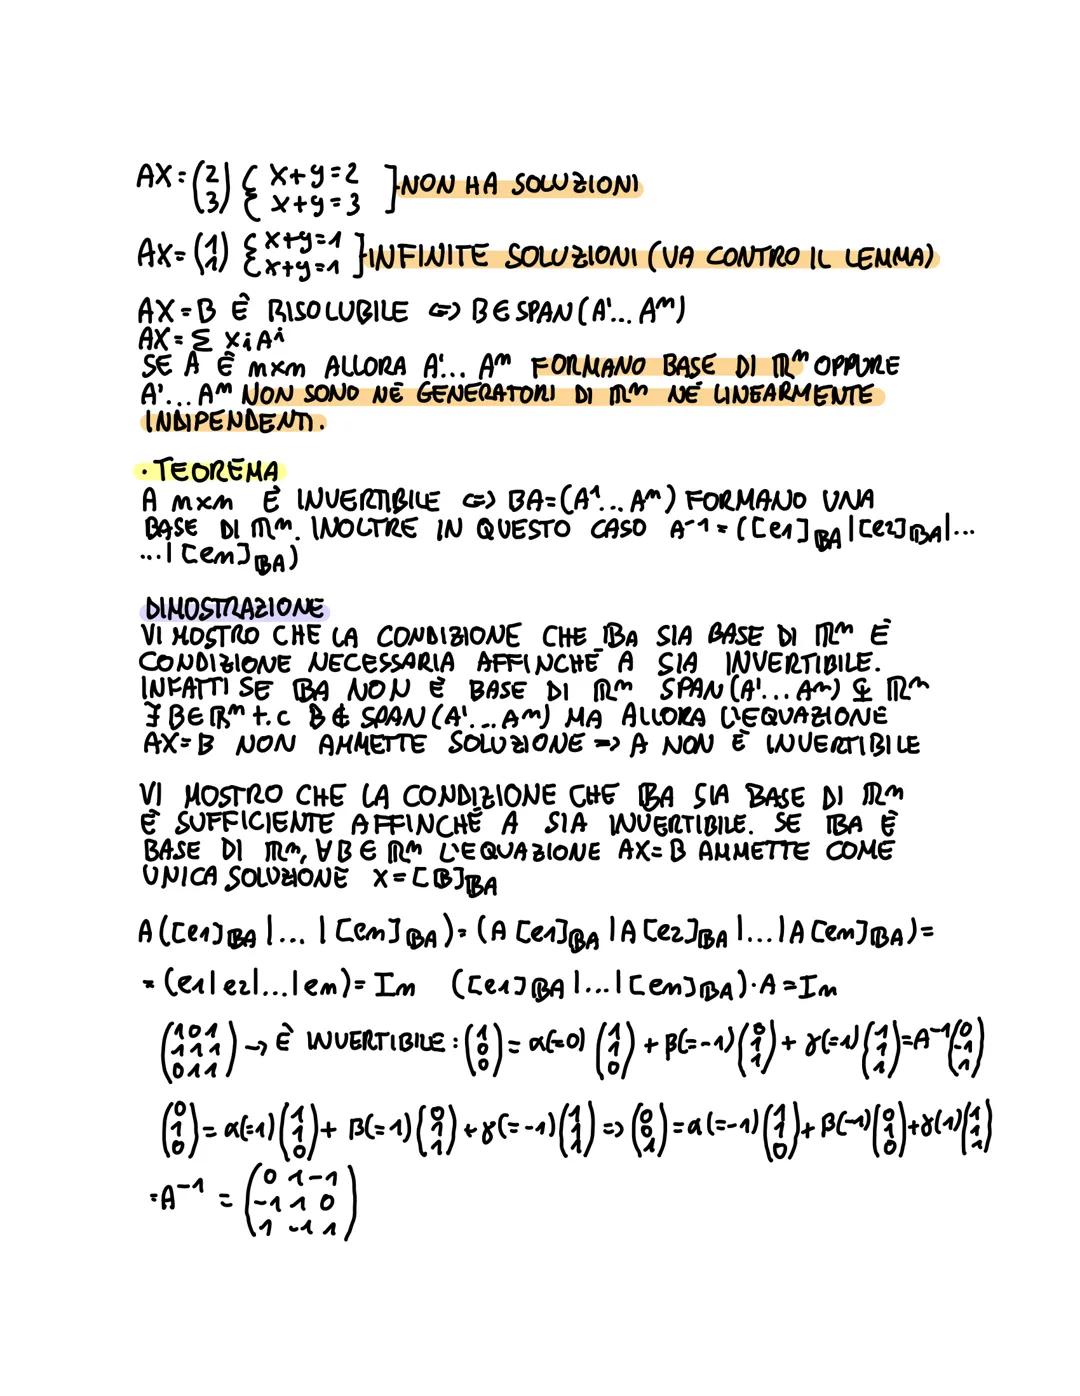 AX=(2 3) { X+y=2 x+y=3 ] NON HA SOLUZIONI
AX=(1 1) { x+y=1 x+y=1 ] INFINITE SOLUZIONI (VA CONTRO IL LEMMA)
AX=B È RISOLUBILE <=> B∈SPAN(A¹... Aⁿ)
AX=Σ xiAⁱ
SE A È nxn ALLORA A¹... Aⁿ FORMANO BASE DI ℝⁿ OPPURE
A¹... Aⁿ NON SONO NÉ GENERATORI DI ℝⁿ NÉ LINEARMENTE
INDIPENDENTI.
• TEOREMA
A nxn È INVERTIBILE <=> BA=(A¹... Aⁿ) FORMANO UNA
BASE DI ℝⁿ. INOLTRE IN QUESTO CASO A⁻¹=([e1]BA|[e2]BA|...
...|[en]BA)
DIMOSTRAZIONE
VI MOSTRO CHE LA CONDIZIONE CHE BA SIA BASE DI ℝⁿ È
CONDIZIONE NECESSARIA AFFINCHÈ A SIA INVERTIBILE.
INFATTI SE BA NON È BASE DI ℝⁿ SPAN(A¹... Aⁿ) ⊊ ℝⁿ
∃ B∈ℝⁿ t.c B∉ SPAN(A¹... Aⁿ) MA ALLORA L'EQUAZIONE
AX=B NON AMMETTE SOLUZIONE => A NON È INVERTIBILE
VI MOSTRO CHE LA CONDIZIONE CHE BA SIA BASE DI ℝⁿ
È SUFFICIENTE AFFINCHÉ A SIA INVERTIBILE. SE BA È
BASE DI ℝⁿ, ∀B∈ℝⁿ L'EQUAZIONE AX=B AMMETTE COME
UNICA SOLUZIONE X=[B]BA
A([e1]BA|...|[en]BA)=(A[e1]BA|A[e2]BA|...|A[en]BA)=
=(e1|e2|...|en)=In ([e1]BA|...|[en]BA)·A=In
(1 0 1 1 1 1 0 1 1) → È INVERTIBILE: (1 0 0)=α(=0)(1 1 0)+β(=-1)(0 1 1)+γ(=1)(1 1 1)=A⁻¹(0 -1 1)
(0 1 0)=α(=1)(1 1 0)+β(=1)(0 1 1)+γ(=-1)(1 1 1)=>(0 0 1)=α(=-1)(1 1 0)+β(-1)(0 1 0)+γ(1)(1 1 1)
=A⁻¹=(0 1 -1 -1 1 0 1 -1 1)